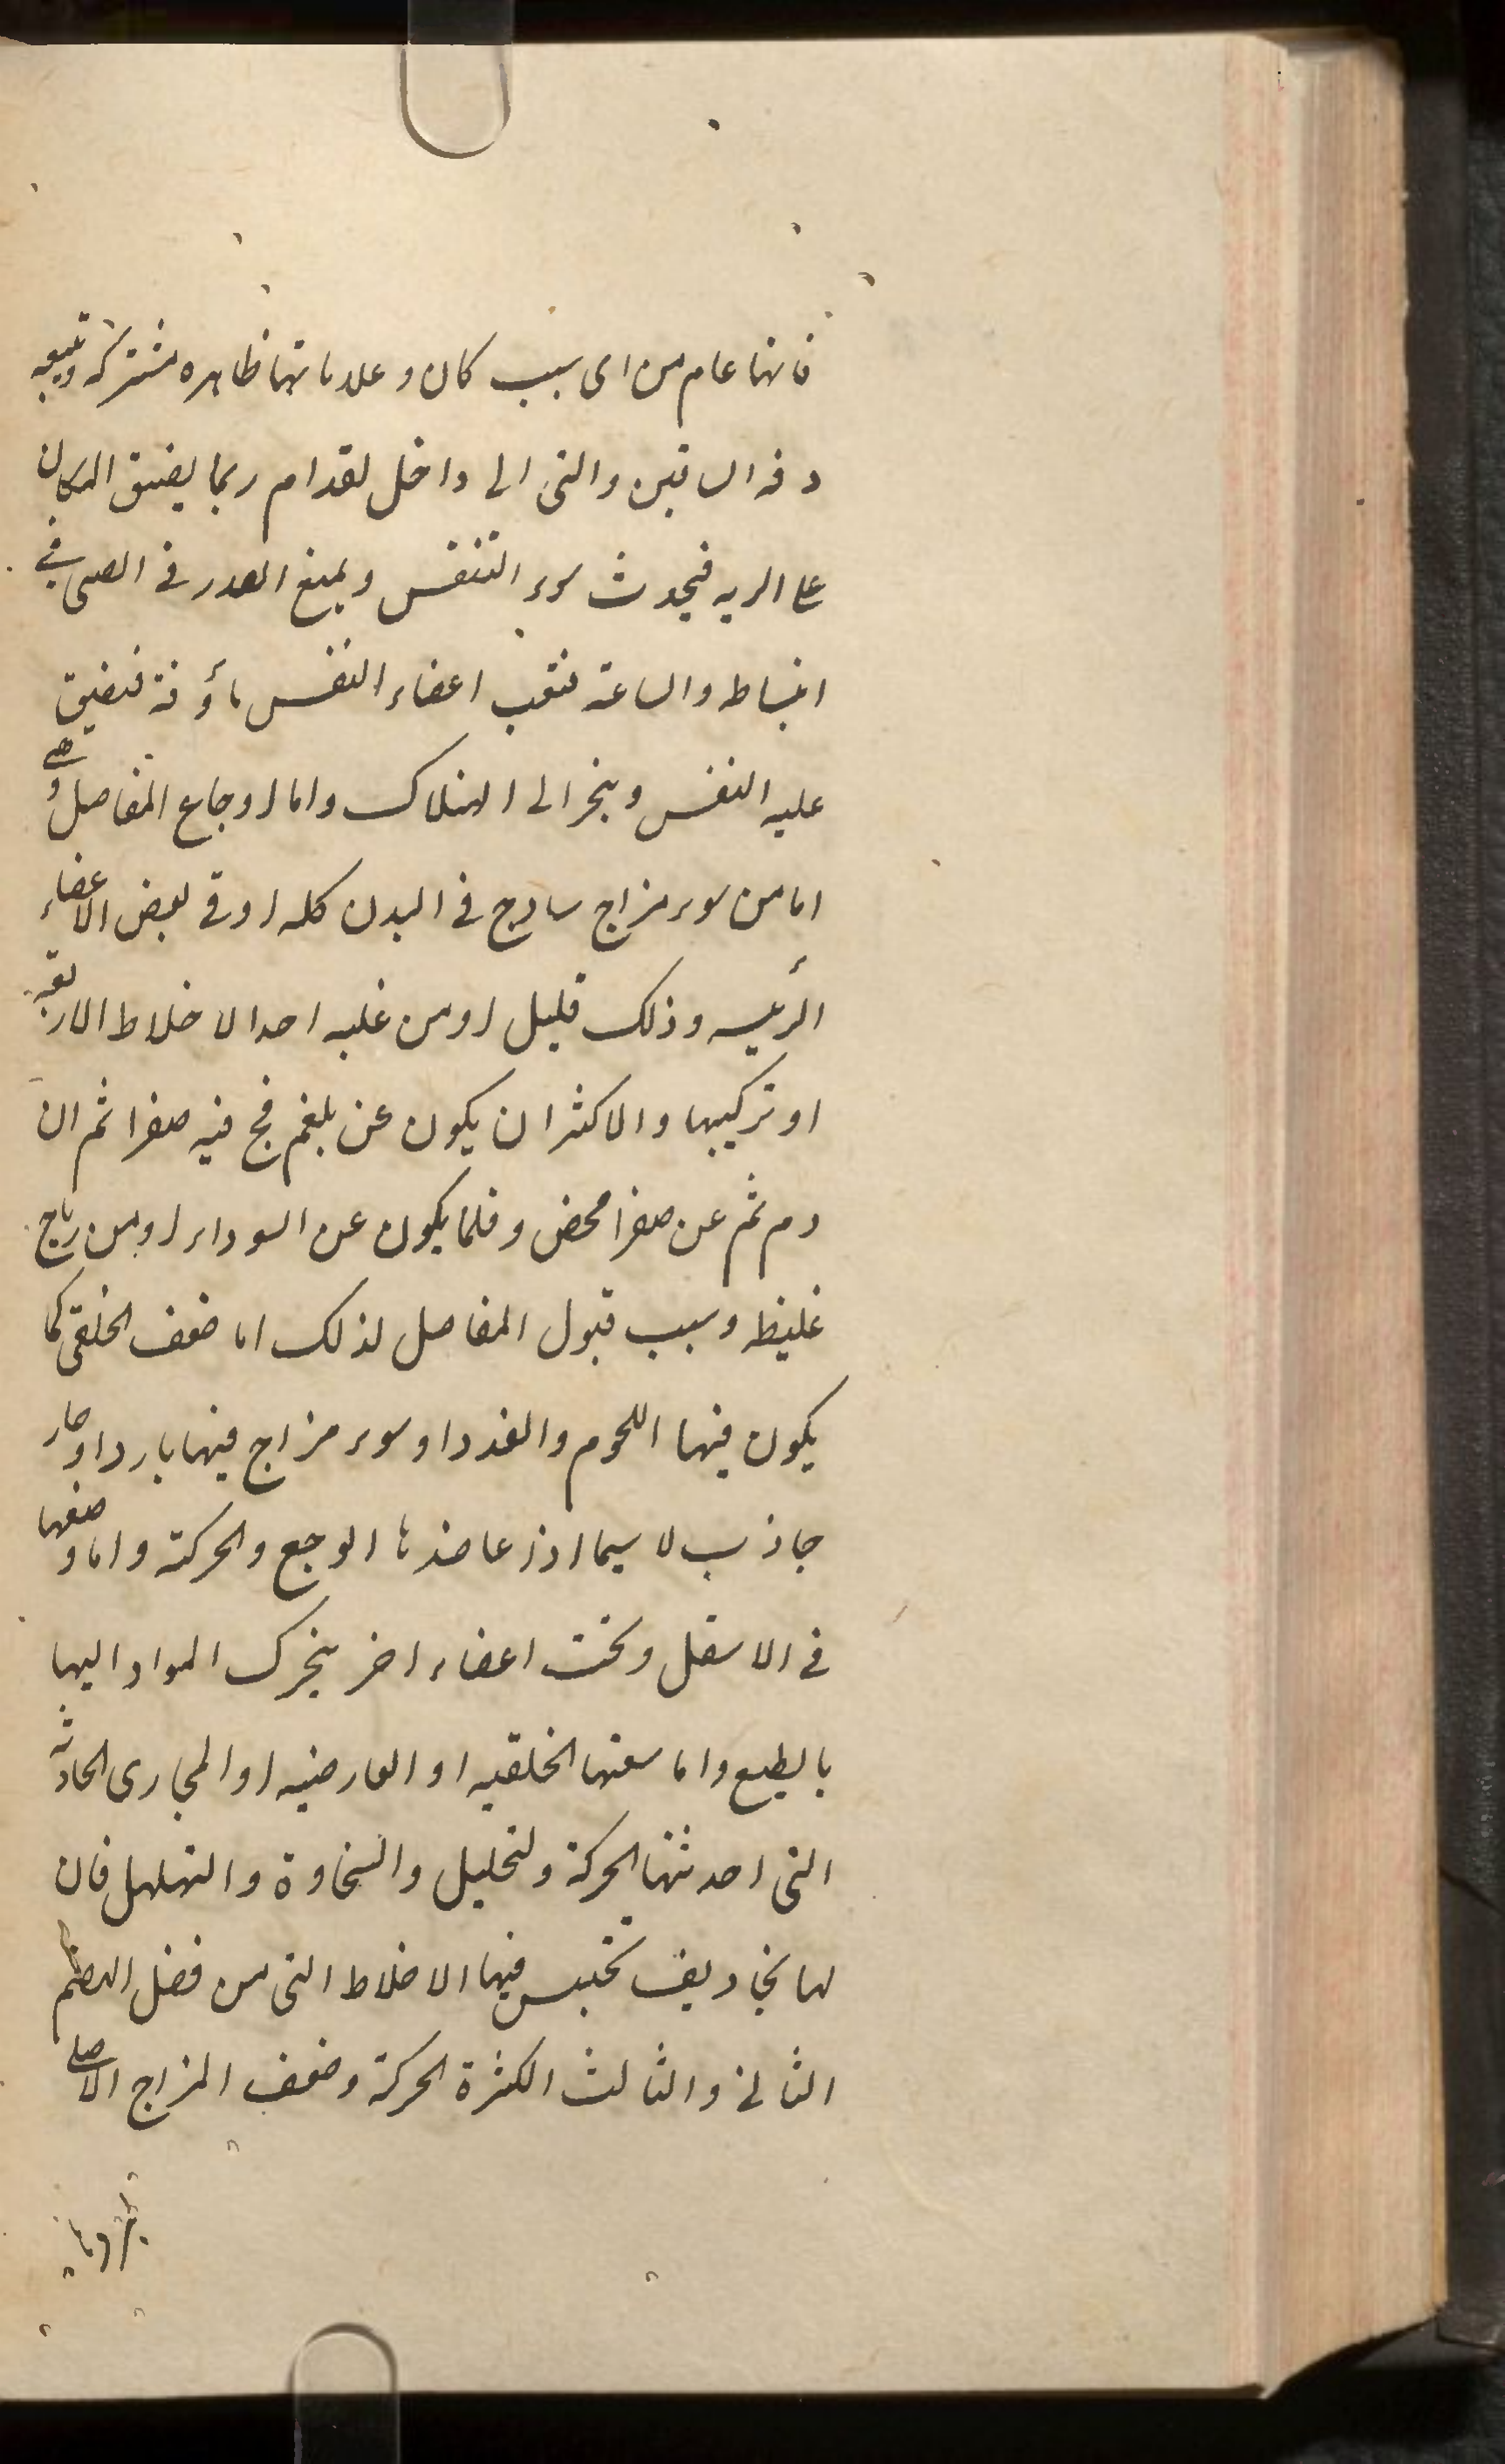 فانها عام من اى سبب كان و علاماتها ظاهره مشتركه و يتبعه
دقه الساقين والتى الى داخل لقدام ربما يضيق المكان
على الريه فيحدث سوء التنفس ويمنع الصدر فى الصبى فى
انبساطه والساعة فتعب اعضاء النفس ماؤفة فتضيق
عليه النفس وينجر الى الهلاك واما اوجاع المفاصل وهى
اما من سوء مزاج سادج فى البدن كله او فى بعض الاعضاء
الرئيسه وذلك قليل او من غلبه احد الاخلاط الاربعة
او تركيبها والاكثر ان يكون عن بلغم فج فيه صفرا ثم ان
دم ثم عن صفرا محض و قلما يكون عن السوداء او من رياح
غليظه وسبب قبول المفاصل لذلك اما ضعف الخلقى كما
يكون فيها اللحوم والغدد او سوء مزاج فيها بارد او حار
جاذب لا سيما اذا عاضدها الوجع والحركة واما وضعها
فى الاسفل وتحت اعضاء اخر يتحرك المواد اليها
بالطبع واما سعتها الخلقيه او العارضيه او المجارى الحادثه
التى احدثتها الحركة ولتحليل والسخاوة والتهلهل فان
لها تجاويف تحتبس فيها الاخلاط التى من فضل الهضم
الثانى والثالث الكثرة الحركة وضعف المزاج الاصلى